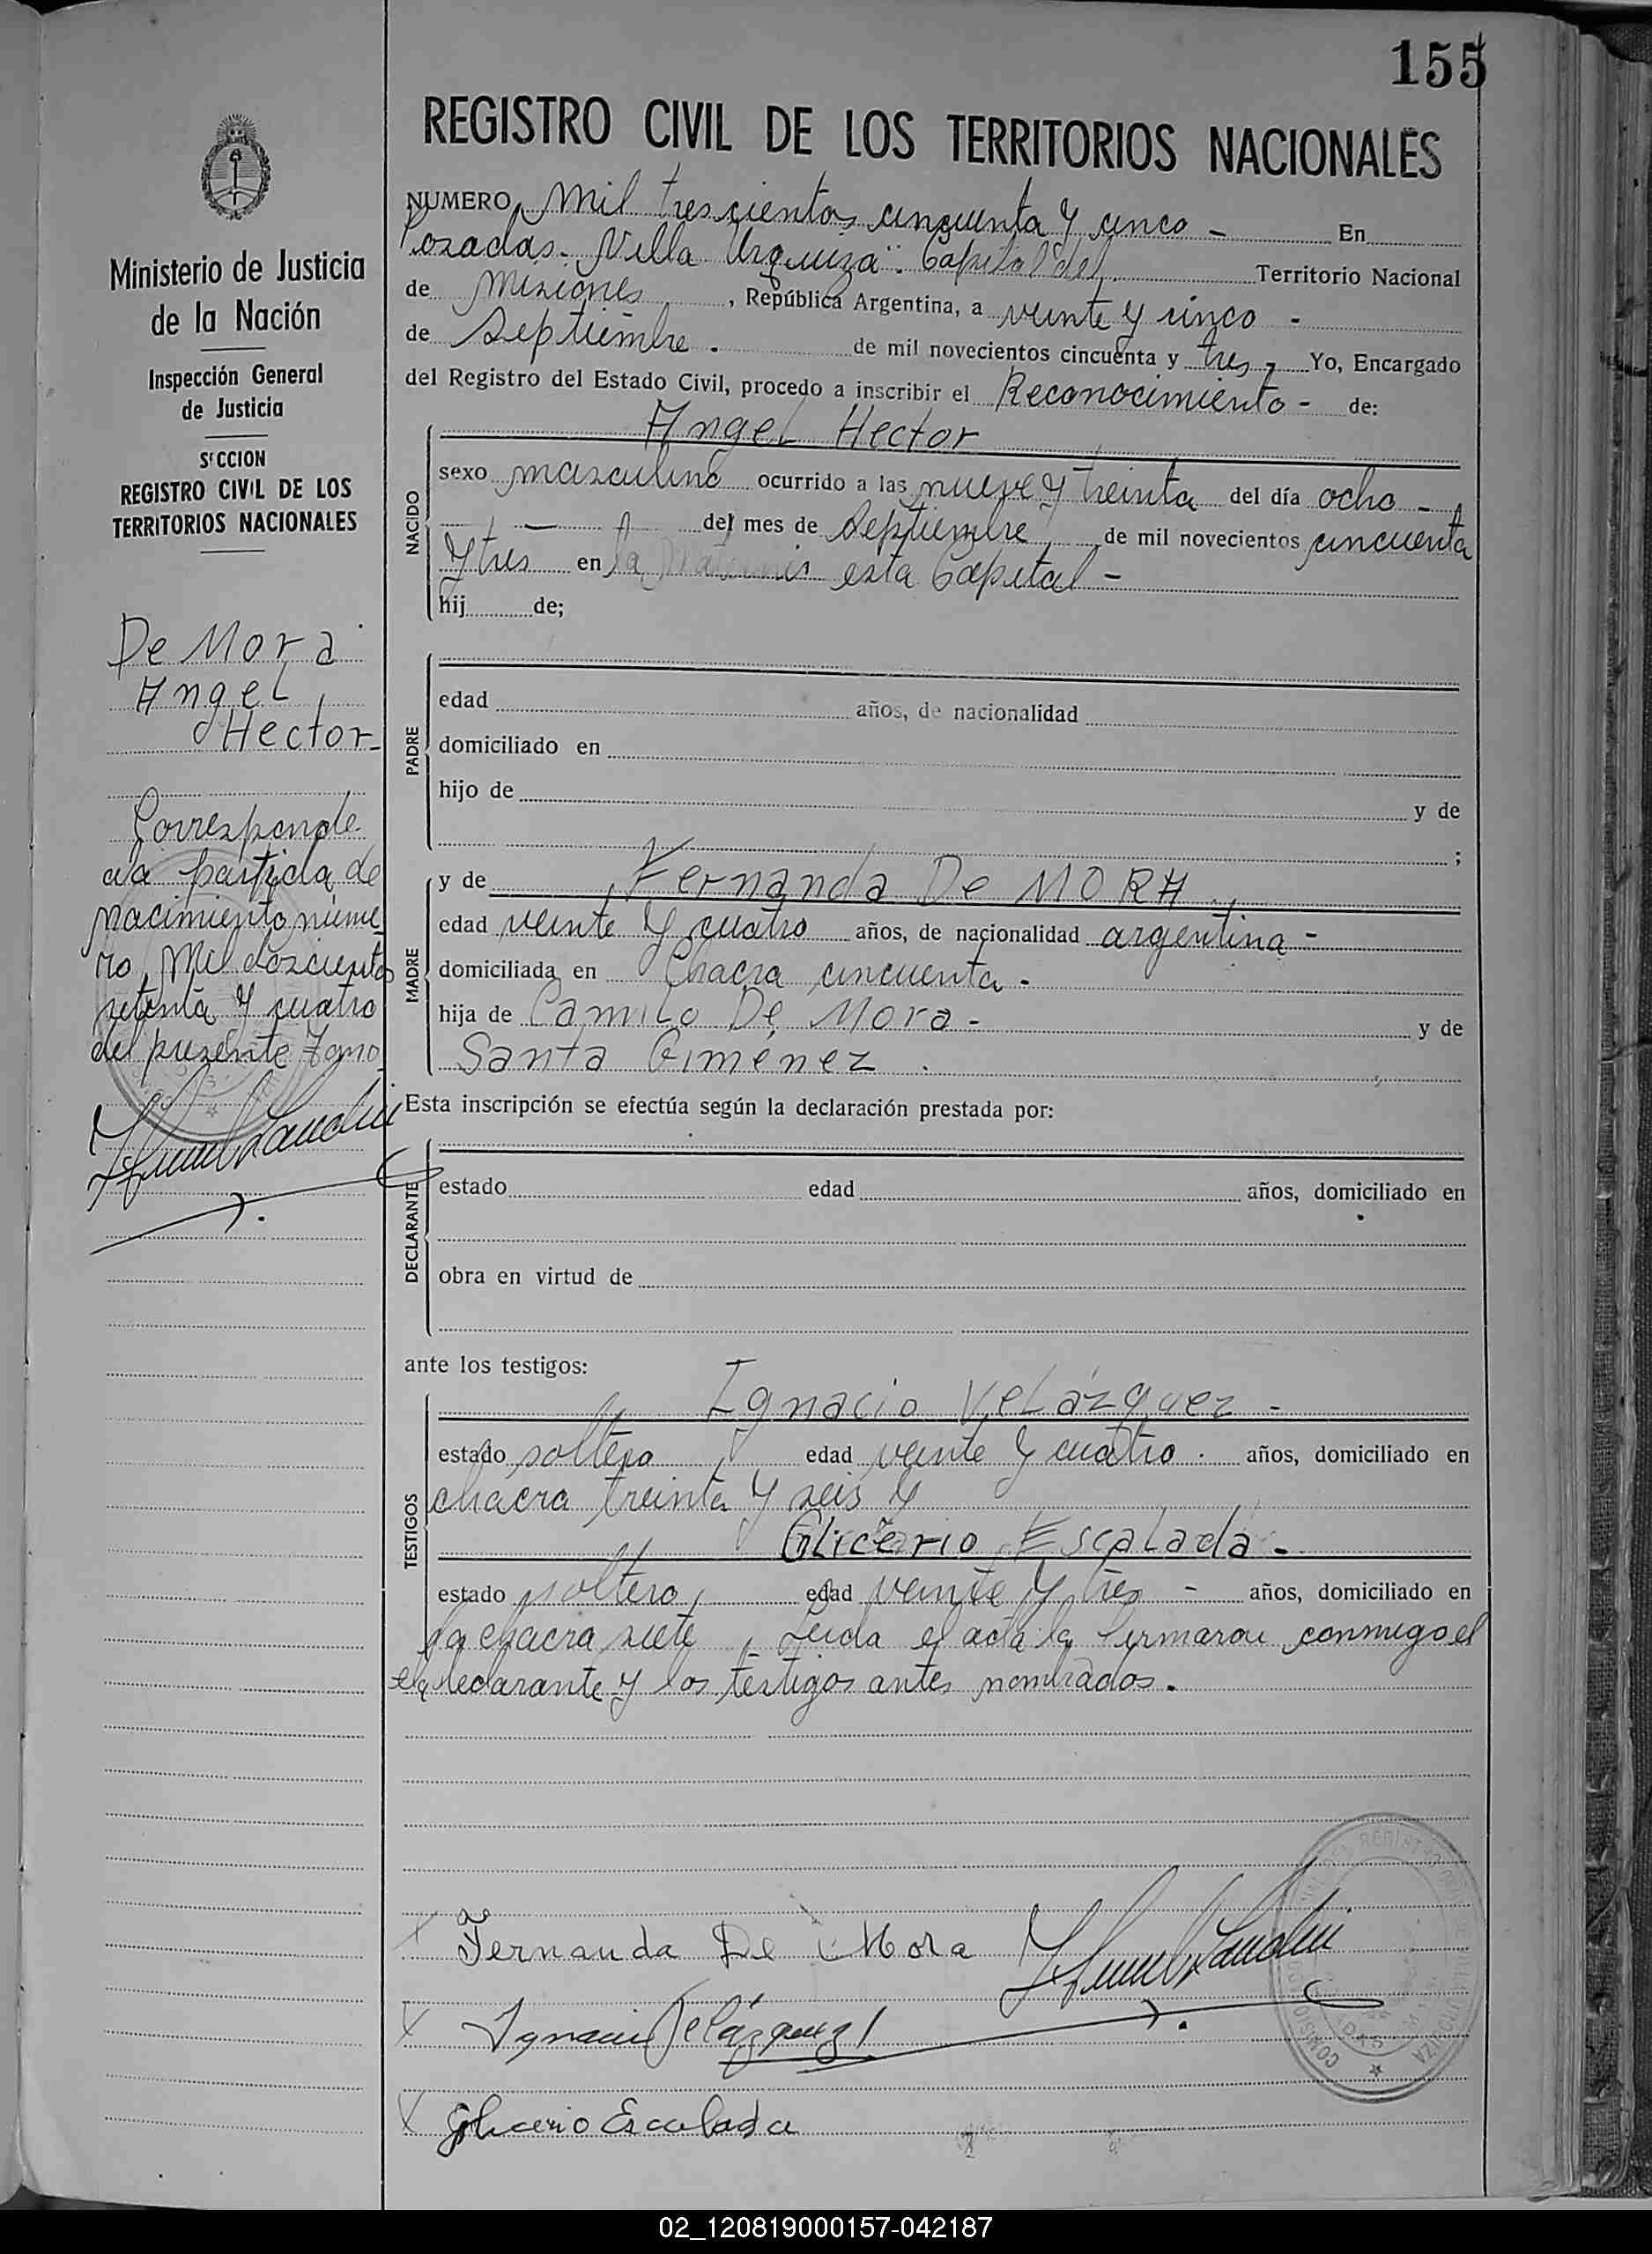 155
REGISTRO CIVIL DE LOS TERRITORIOS NACIONALES
NUMERO Mil trescientos cincuenta y cinco - En
Posadas. Villa Urquiza". Capital del Territorio Nacional
de Misiones, República Argentina, a veinte y cinco -
de Septiembre. de mil novecientos cincuenta y tres - Yo, Encargado
del Registro del Estado Civil, procedo a inscribir el Reconocimiento - de:
NACIDO
Angel Hector
sexo masculino ocurrido a las nueve y treinta del día ocho -
- del mes de Septiembre, de mil novecientos cincuenta
y tres en esta Capital -
hij de;
PADRE
edad años, de nacionalidad
domiciliado en
hijo de y de
;
MADRE
y de Fernanda De MORA
edad veinte y cuatro años, de nacionalidad argentina -
domiciliada en Chacra cincuenta -
hija de Camilo De Mora - y de
Santa Gimenez.
Esta inscripción se efectúa según la declaración prestada por:
DECLARANTE
estado edad años, domiciliado en
obra en virtud de
ante los testigos:
TESTIGOS
Ignacio Velázquez -
estado soltero edad veinte y cuatro. años, domiciliado en
chacra treinta y seis y
Glicerio Escalada -
estado soltero, edad veinte y tres - años, domiciliado en
la chacra siete, Leida el acta la firmaron conmigo el
declarante y los testigos antes nombrados.
Fernanda De Mora
Ignacio Velázquez
Glicerio Escalada
Ministerio de Justicia
de la Nación
Inspección General
de Justicia
SECCION
REGISTRO CIVIL DE LOS
TERRITORIOS NACIONALES
De Mora
Angel
Hector -
Corresponde
a la partida de
nacimiento núme
ro, Mil doscientos
setenta y cuatro
del presente Tomo
02_120819000157-042187